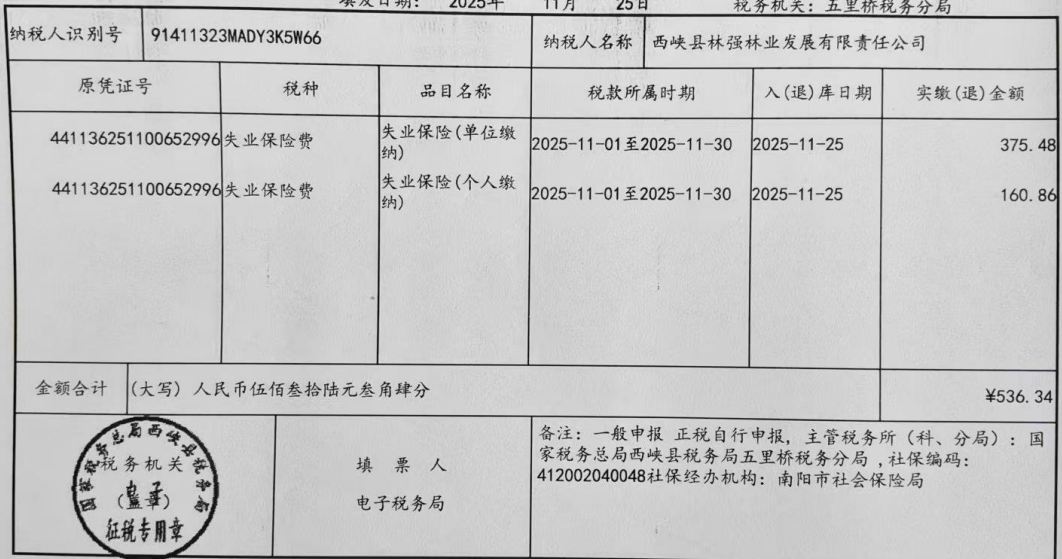 填发日期： 2025年 11月 25日 税务机关：五里桥税务分局
纳税人识别号 91411323MADY3K5W66 纳税人名称 西峡县林强林业发展有限责任公司
原凭证号 税种 品目名称 税款所属时期 入(退)库日期 实缴(退)金额
441136251100652996 失业保险费 失业保险(单位缴
纳) 2025-11-01至2025-11-30 2025-11-25 375.48
441136251100652996 失业保险费 失业保险(个人缴
纳) 2025-11-01至2025-11-30 2025-11-25 160.86
金额合计 (大写) 人民币伍佰叁拾陆元叁角肆分 ¥536.34
国家税务总局西峡县税务局
税务机关
(盖章)
征税专用章
填票人
电子税务局
备注：一般申报 正税自行申报, 主管税务所（科、分局）：国
家税务总局西峡县税务局五里桥税务分局 ,社保编码：
412002040048社保经办机构：南阳市社会保险局